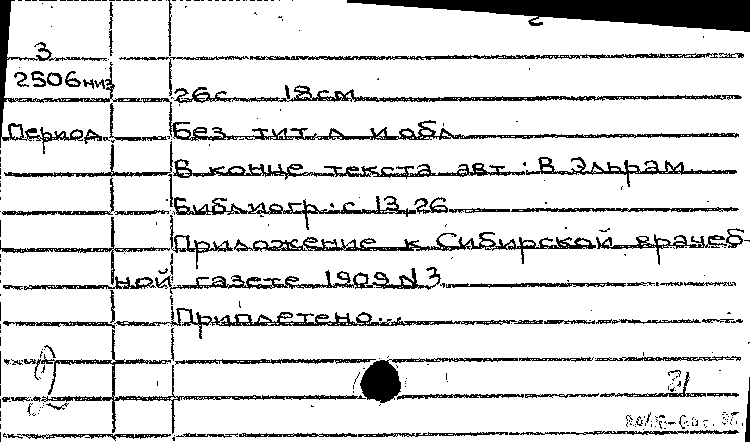 3
2506 низ
26 с 18 см
Период Без тит. л и обл
В конце текста авт: В Эльрам
Библиогр: с 13, 26
Приложение к Сибирской врачеб-
ной газете 1909 N 3
Приплетено...
2